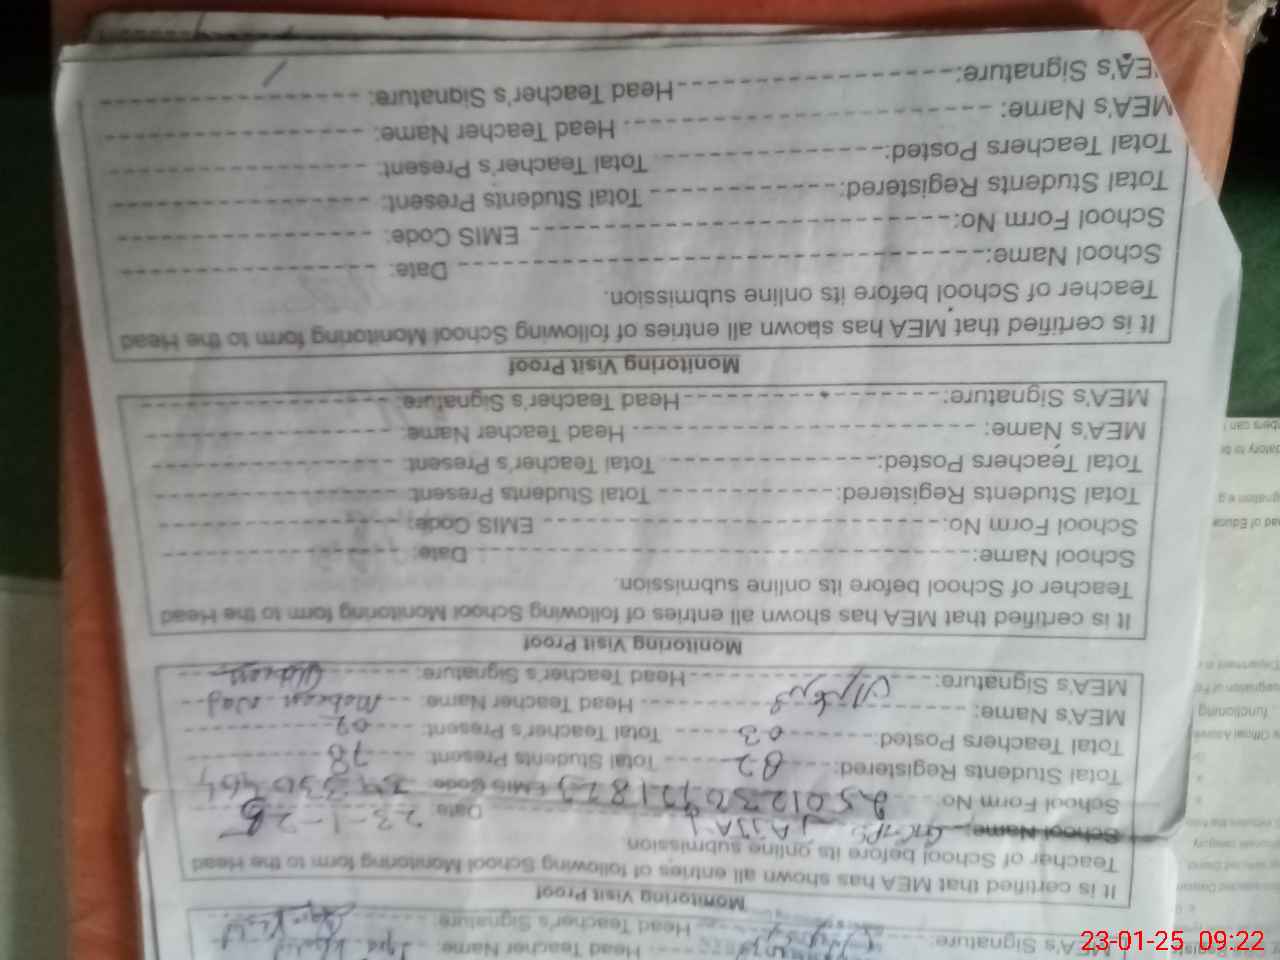 MEA's Signature: Head Teacher Name:
Head Teacher's Signature:
Monitoring Visit Proof
It is certified that MEA has shown all entries of following School Monitoring form to the Head
Teacher of School before its online submission
School Name: JAJJA Date 23-1-25
School Form No: EMIS Code:
Total Students Registered: 82 Total Students Present: 78
Total Teachers Posted: 03 Total Teacher's Present: 02
MEA's Name: Head Teacher Name: Mobeen Naz
MEA's Signature: Head Teacher's Signature:
Monitoring Visit Proof
It is certified that MEA has shown all entries of following School Monitoring form to the Head
Teacher of School before its online submission.
School Name: Date:
School Form No: EMIS Code:
Total Students Registered: Total Students Present:
Total Teachers Posted: Total Teacher's Present:
MEA's Name: Head Teacher Name:
MEA's Signature: Head Teacher's Signature:
Monitoring Visit Proof
It is certified that MEA has shown all entries of following School Monitoring form to the Head
Teacher of School before its online submission.
School Name: Date:
School Form No: EMIS Code:
Total Students Registered: Total Students Present:
Total Teachers Posted: Total Teacher's Present:
MEA's Name: Head Teacher Name:
MEA's Signature: Head Teacher's Signature:
23-01-25 09:22